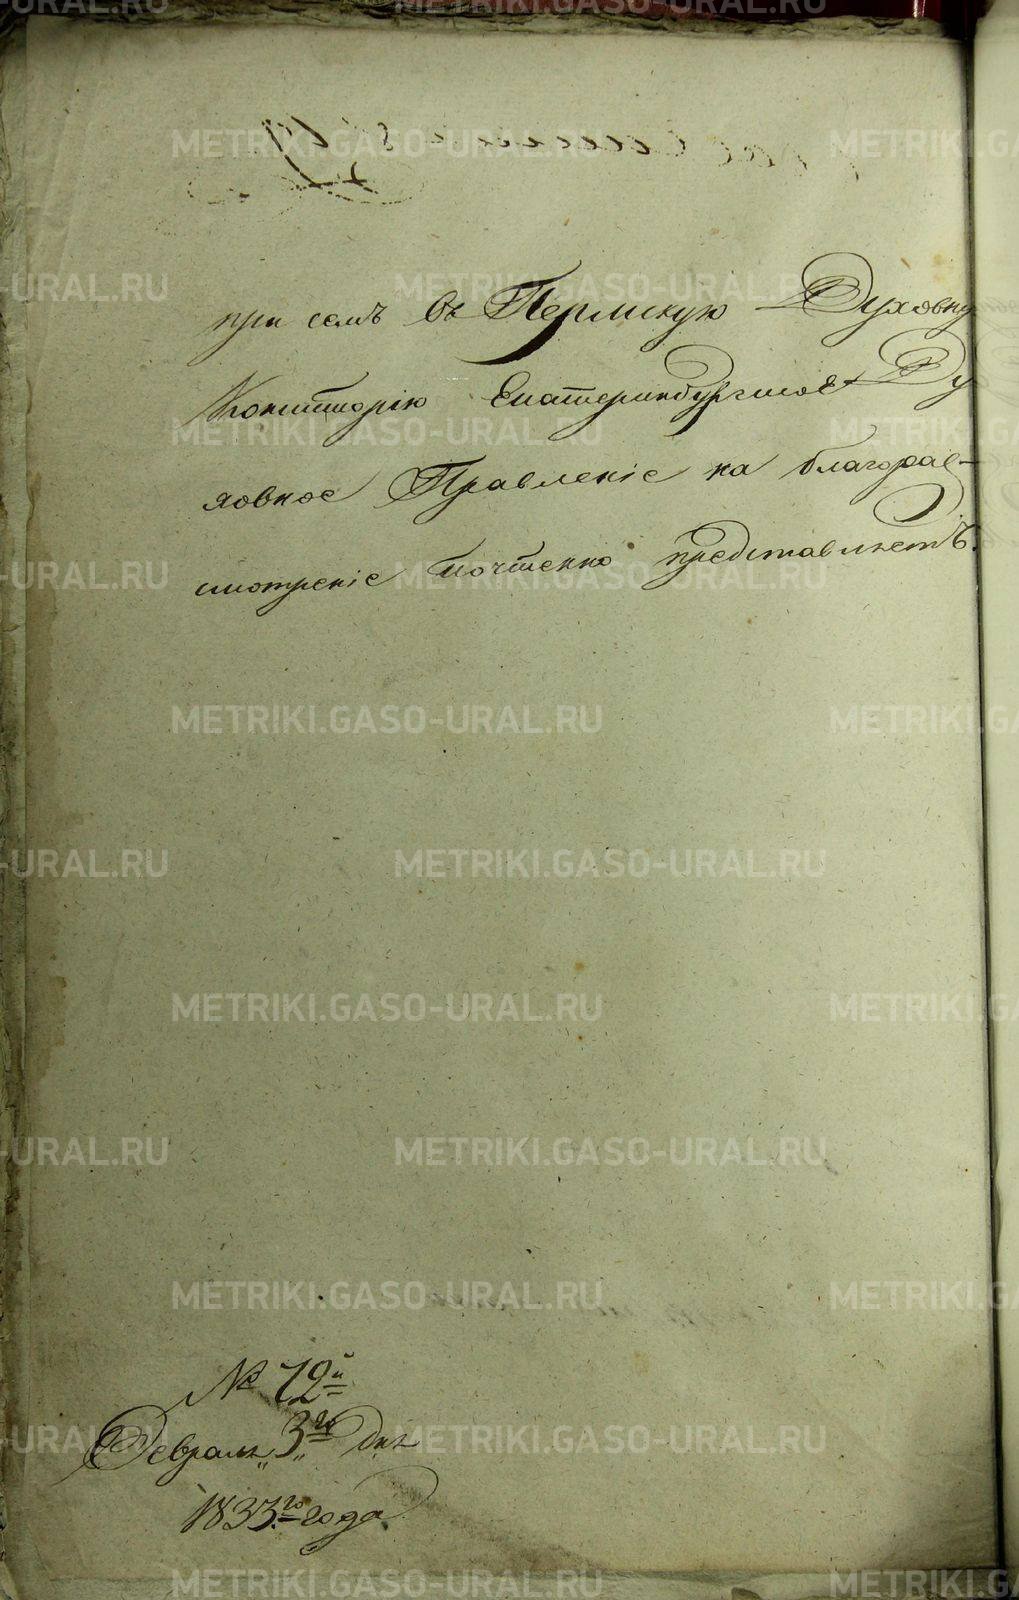 при семъ въ Пермскую Духовну
Консисторію Екатеринбургское Ду
ховное Правленіе на благораз-
смотреніе почтенно представляетъ.
№ 72й
Февраля „3го„ дня
1833го года.
METRIKI.GASO-URAL.RU